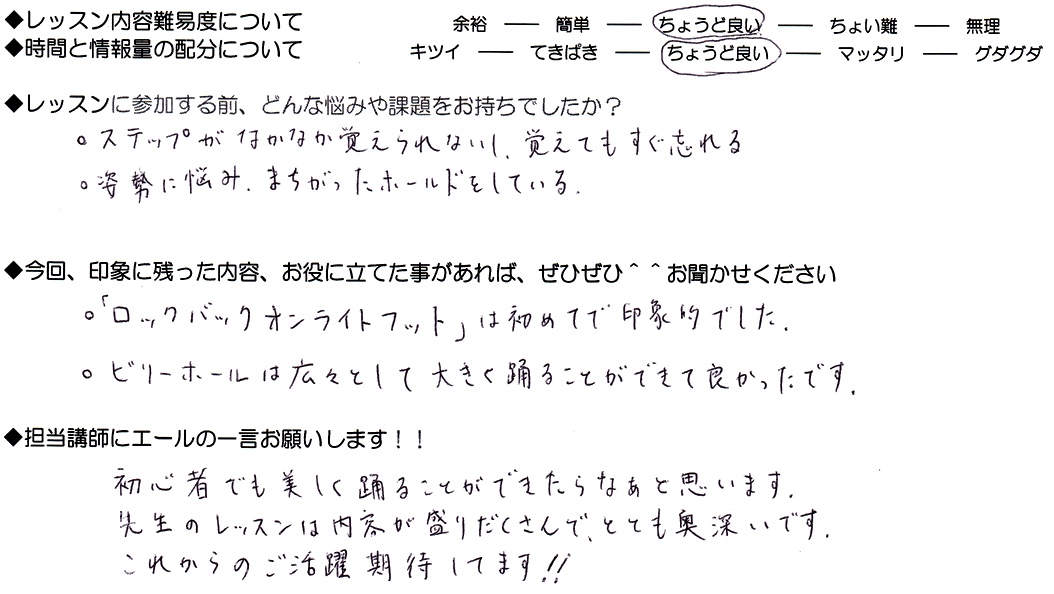 ◆レッスン内容難易度について 余裕 ― 簡単 ― ちょうど良い ― ちょい難 ― 無理
◆時間と情報量の配分について キツイ ― てきぱき ― ちょうど良い ― マッタリ ― グダグダ
◆レッスンに参加する前、どんな悩みや課題をお持ちでしたか？
○ステップがなかなか覚えられないし、覚えてもすぐ忘れる
○姿勢に悩み、まちがったホールドをしている。
◆今回、印象に残った内容、お役に立てた事があれば、ぜひぜひ＾＾お聞かせください
○「ロックバックオンライトフット」は初めてで印象的でした。
○ビリーホールは広々として大きく踊ることができて良かったです。
◆担当講師にエールの一言お願いします！！
初心者でも美しく踊ることができたらなぁと思います。
先生のレッスンは内容が盛りだくさんで、とても奥深いです。
これからのご活躍期待してます!!